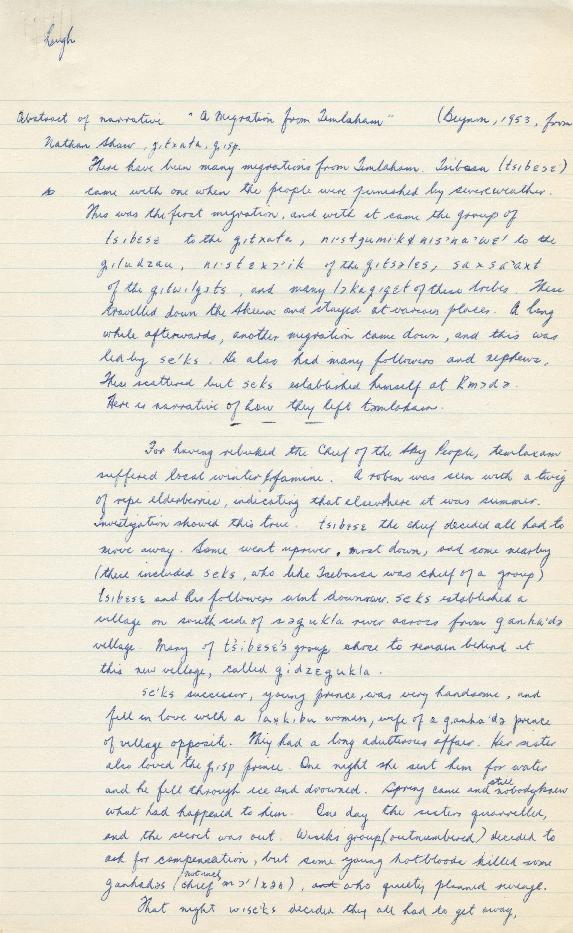 Abstract of narrative "A Migration from Temlaham" (Beynon, 1953, from
Nathan Shaw, gitxata, gisp.
There have been many migrations from Temlaham. Tsibasa (tsibɛsɛ)
came with one when the people were punished by severe weather.
This was the first migration, and with it came the group of
tsibɛsɛ to the gitxata, nistgumik & nis'na'wɛ' to the
giludzau, of the gitsalɛs, saxsa'axt
of the gitwilgɔts, and many of these tribes. These
travelled down the Skeena and stayed at various places. A long
while afterwards, another migration came down, and this was
led by sɛ'ks. He also had many followers and nephews.
They scattered but sɛks established himself at
Here is narrative of how they left temlaham.
For having rebuked the Chief of the Sky People, temlaxam
suffered local winter & famine. A robin was seen with a twig
of ripe elderberries, indicating that elsewhere it was summer.
Investigation showed this true. tsibɛsɛ the chief decided all had to
move away. Some went upriver, most down, and some nearby
(these included sɛks, who like Tsebassa was chief of a group)
tsibɛsɛ and his followers went downriver. sɛks established a
village on south side of sɔgukla river across from ganha'dɔ
village. Many of tsibɛsɛ's group chose to remain behind at
this new village, called gidzɛgukla.
sɛ'ks successor, young prince, was very handsome, and
fell in love with a laxkibu women, wife of a ganha'dɔ prince
of village opposite. They had a long adulterous affair. Her sister
also loved the gisp prince. One night she sent him for water
and he fell through ice and drowned. Spring came and still nobody knew
what had happened to him. One day the sisters quarrelled,
and the secret was out. Wiseks group (outnumbered) decided to
ask for compensation, but some young hotbloods killed some
ganhadɔs (chief), who quietly planned revenge.
That night wisɛ'ks decided they all had to get away,